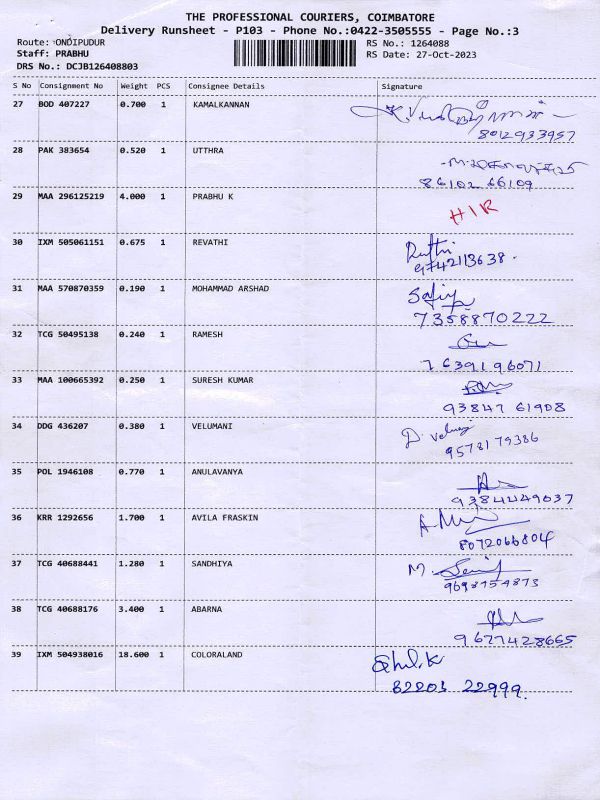 THE PROFESSIONAL COURIERS, COIMBATORE
Delivery Runsheet - P103 - Phone No.:0422-3505555 - Page No.:3
Route: ONDIPUDUR RS No.: 1264088
Staff: PRABHU RS Date: 27-Oct-2023
DRS No.: DCJB126408803
S No Consignment No Weight PCS Consignee Details Signature
27 BOD 407227 0.700 1 KAMALKANNAN
8012933957
28 PAK 383654 0.520 1 UTTHRA
86102 66109
29 MAA 296125219 4.000 1 PRABHU K HIR
30 IXM 505061151 0.675 1 REVATHI
9742113638.
31 MAA 570870359 0.190 1 MOHAMMAD ARSHAD
7358870222
32 TCG 50495138 0.240 1 RAMESH
7639196071
33 MAA 100665392 0.250 1 SURESH KUMAR
93847 61908
34 DDG 436207 0.380 1 VELUMANI D
9578179386
35 POL 1946108 0.770 1 ANULAVANYA
9384449037
36 KRR 1292656 1.700 1 AVILA FRASKIN
8072066804
37 TCG 40688441 1.280 1 SANDHIYA M.
38 TCG 40688176 3.400 1 ABARNA
9677428665
39 IXM 504938016 18.600 1 COLORALAND
82203 22999.